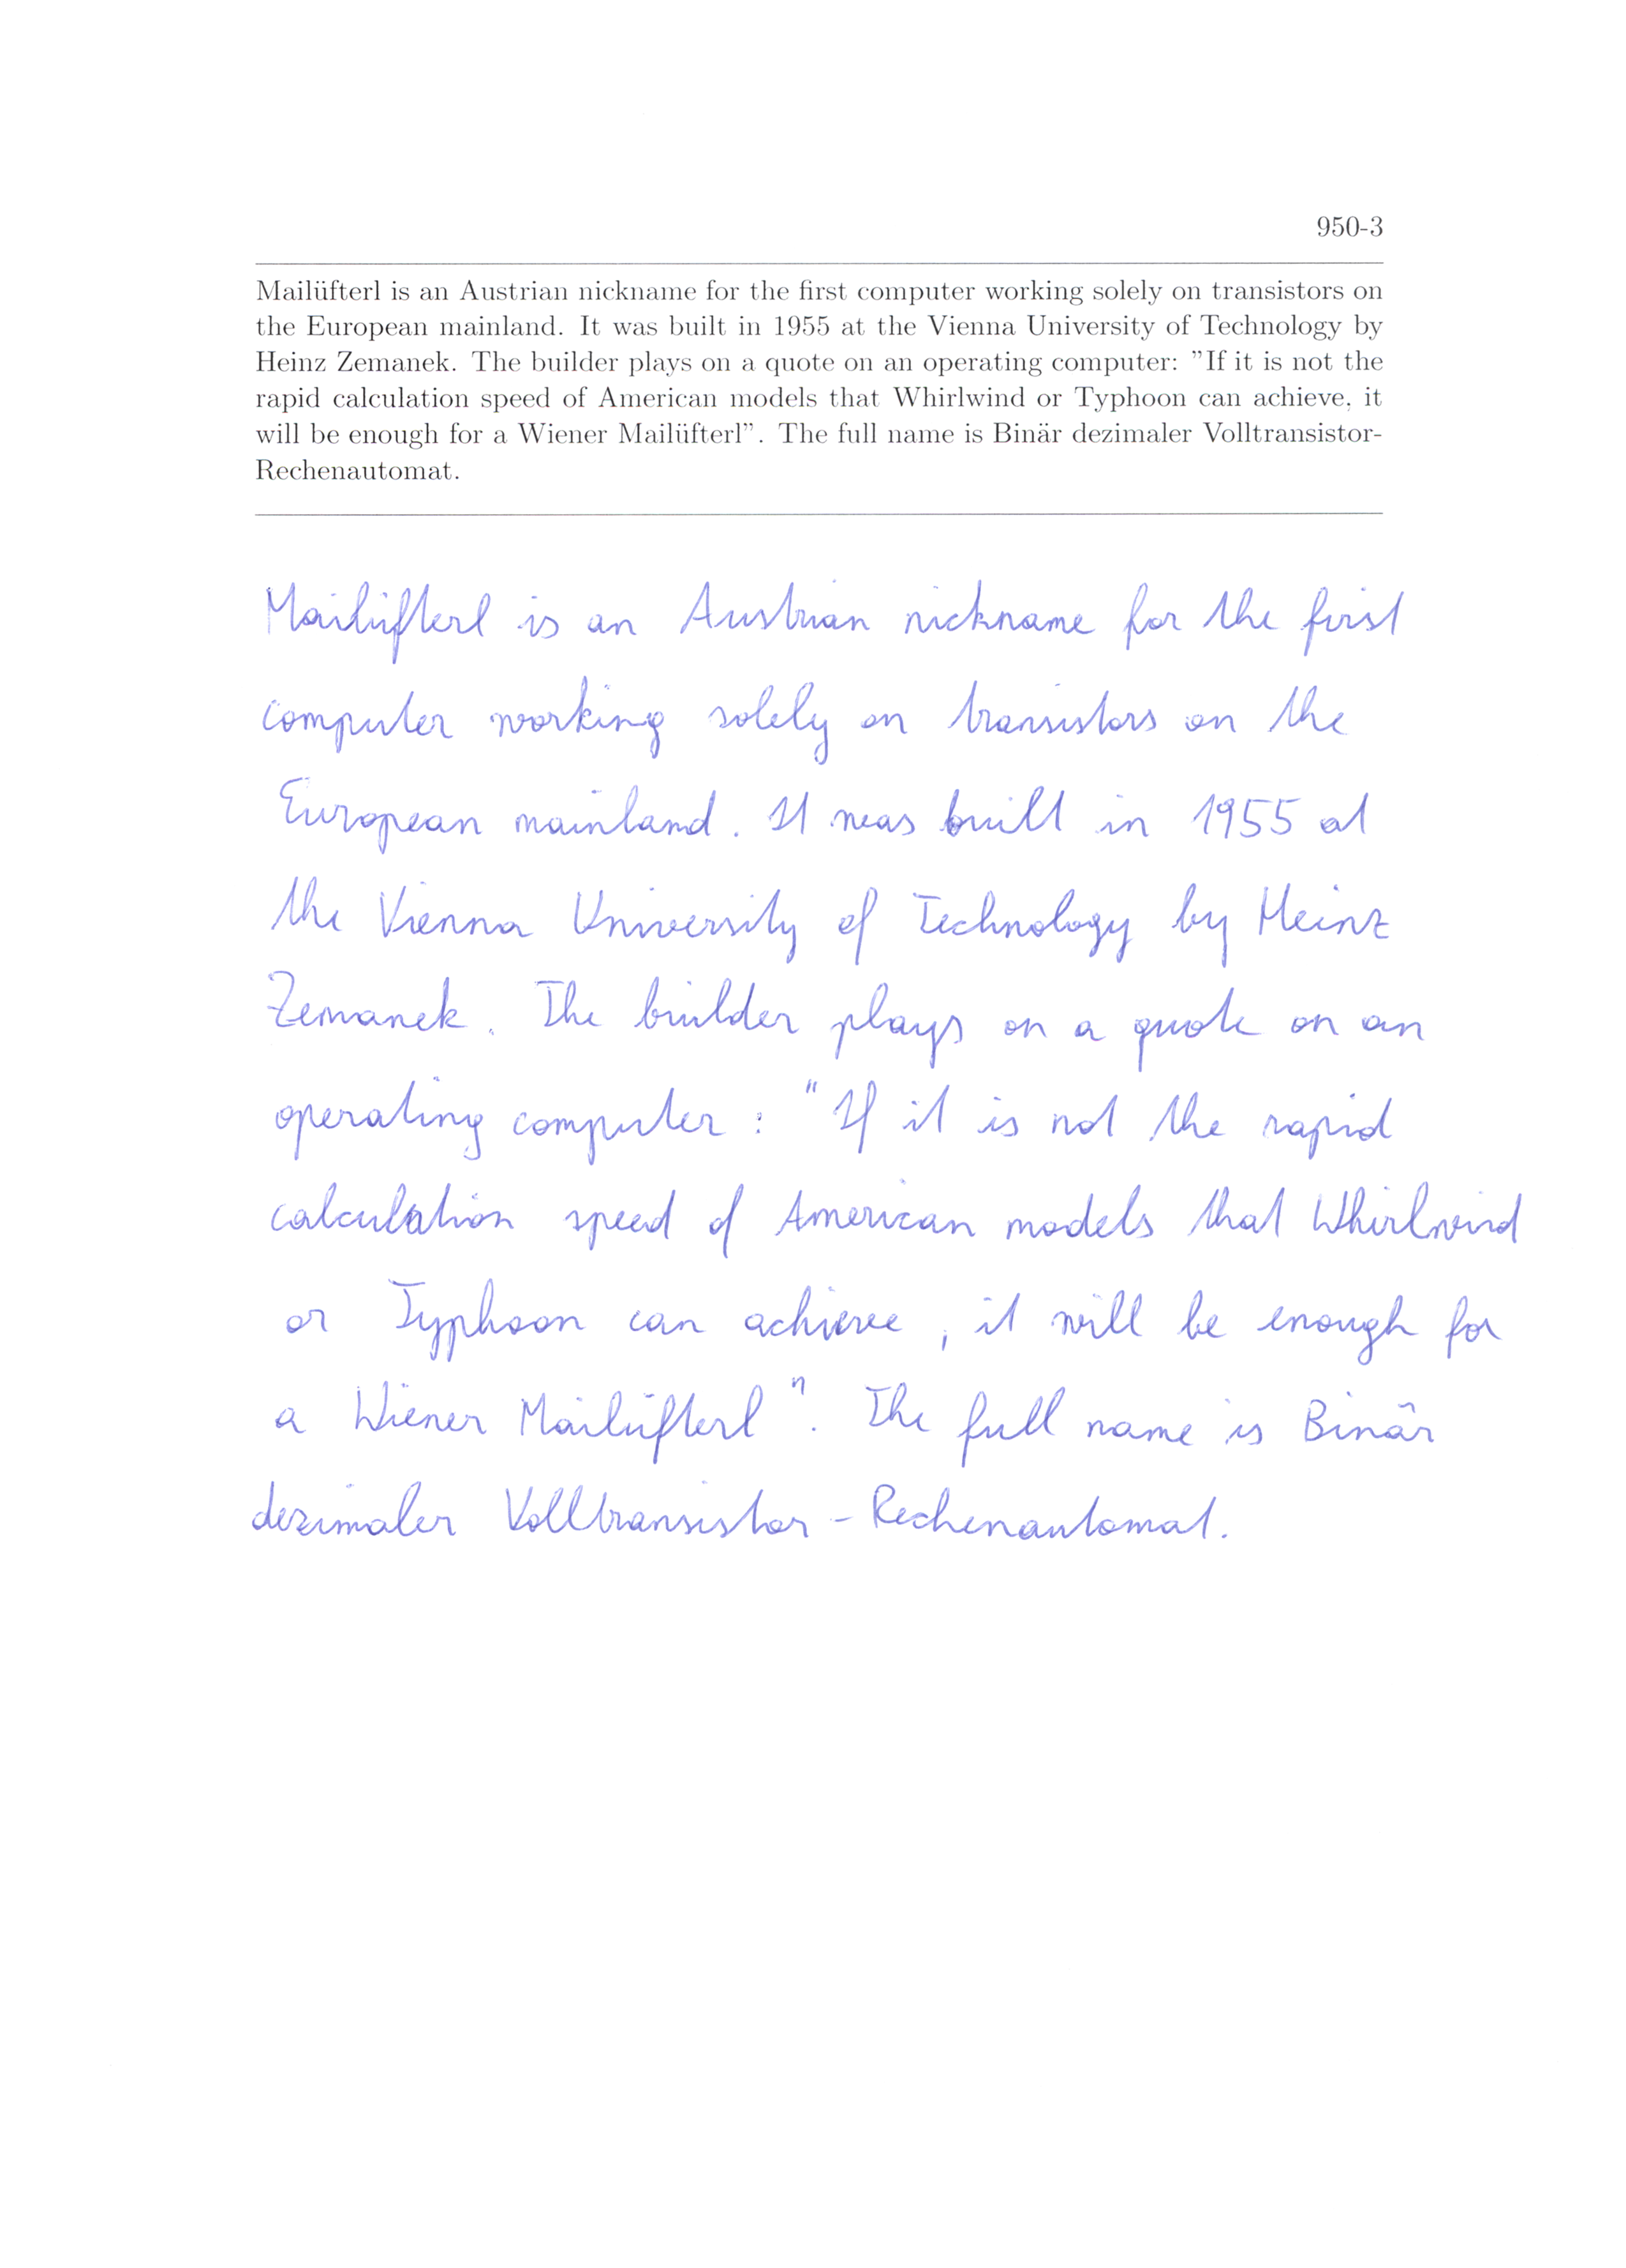 950-3
Mailüfterl is an Austrian nickname for the first computer working solely on transistors on
the European mainland. It was built in 1955 at the Vienna University of Technology by
Heinz Zemanek. The builder plays on a quote on an operating computer: "If it is not the
rapid calculation speed of American models that Whirlwind or Typhoon can achieve, it
will be enough for a Wiener Mailüfterl". The full name is Binär dezimaler Volltransistor-
Rechenautomat.
Mailüfterl is an Austrian nickname for the first
computer working solely on transistors on the
European mainland. It was built in 1955 at
the Vienna University of Technology by Heinz
Zemanek. The builder plays on a quote on an
operating computer: "If it is not the rapid
calculation speed of American models that Whirlwind
or Typhoon can achieve, it will be enough for
a Wiener Mailüfterl". The full name is Binär
dezimaler Volltransistor-Rechenautomat.